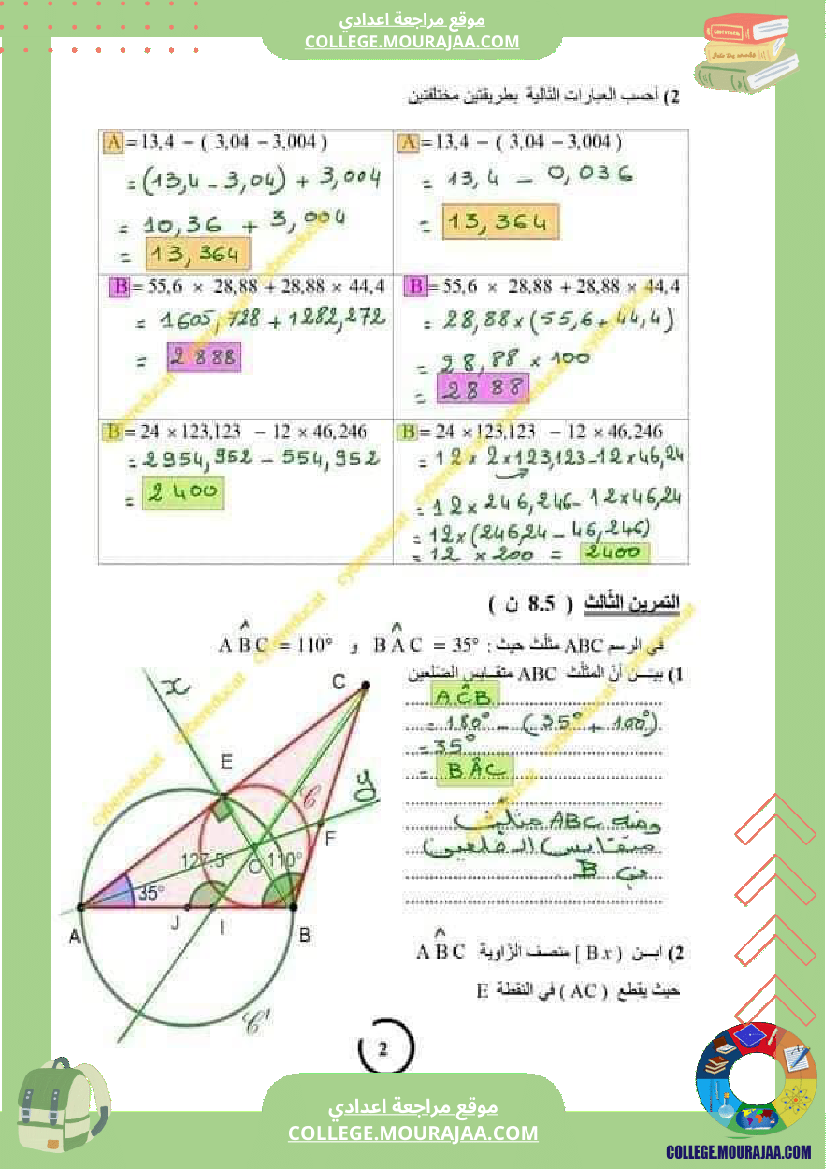 موقع مراجعة اعدادي
COLLEGE.MOURAJAA.COM
2) أحسب العبارات التالية بطريقتين مختلفتين
A = 13,4 − ( 3,04 − 3,004 )
= (13,4 - 3,04) + 3,004
= 10,36 + 3,004
= 13,364
A = 13,4 − ( 3,04 − 3,004 )
= 13,4 − 0,036
= 13,364
B = 55,6 × 28,88 + 28,88 × 44,4
= 1605,728 + 1282,272
= 2888
B = 55,6 × 28,88 + 28,88 × 44,4
= 28,88 × (55,6 + 44,4)
= 28,88 × 100
= 2888
B = 24 × 123,123 − 12 × 46,246
= 2954,952 − 554,952
= 2400
B = 24 × 123,123 − 12 × 46,246
= 12 × 2 × 123,123 − 12 × 46,24
= 12 × 246,246 − 12 × 46,24
= 12 × (246,24 − 46,246)
= 12 × 200 = 2400
التمرين الثالث ( 8.5 ن )
في الرسم ABC مثلث حيث : BÂC = 35° و AB̂C = 110°
1) بيـــن أن المثلث ABC متقــايس الضلعين
AĈB
= 180° − (35° + 110°)
= 35°
= BÂC
ومنه ABC مثلث
متقايس الضلعين
في B
x
C
E
𝒞
y
F
127.5°
O
110°
35°
A
J
I
B
𝒞'
2) ابــن [ Bx ) منصف الزاوية AB̂C
حيث يقطع ( AC ) في النقطة E
2
cybereducat
cybereducat
cybereducat
cybereducat
موقع مراجعة اعدادي
COLLEGE.MOURAJAA.COM
COLLEGE.MOURAJAA.COM